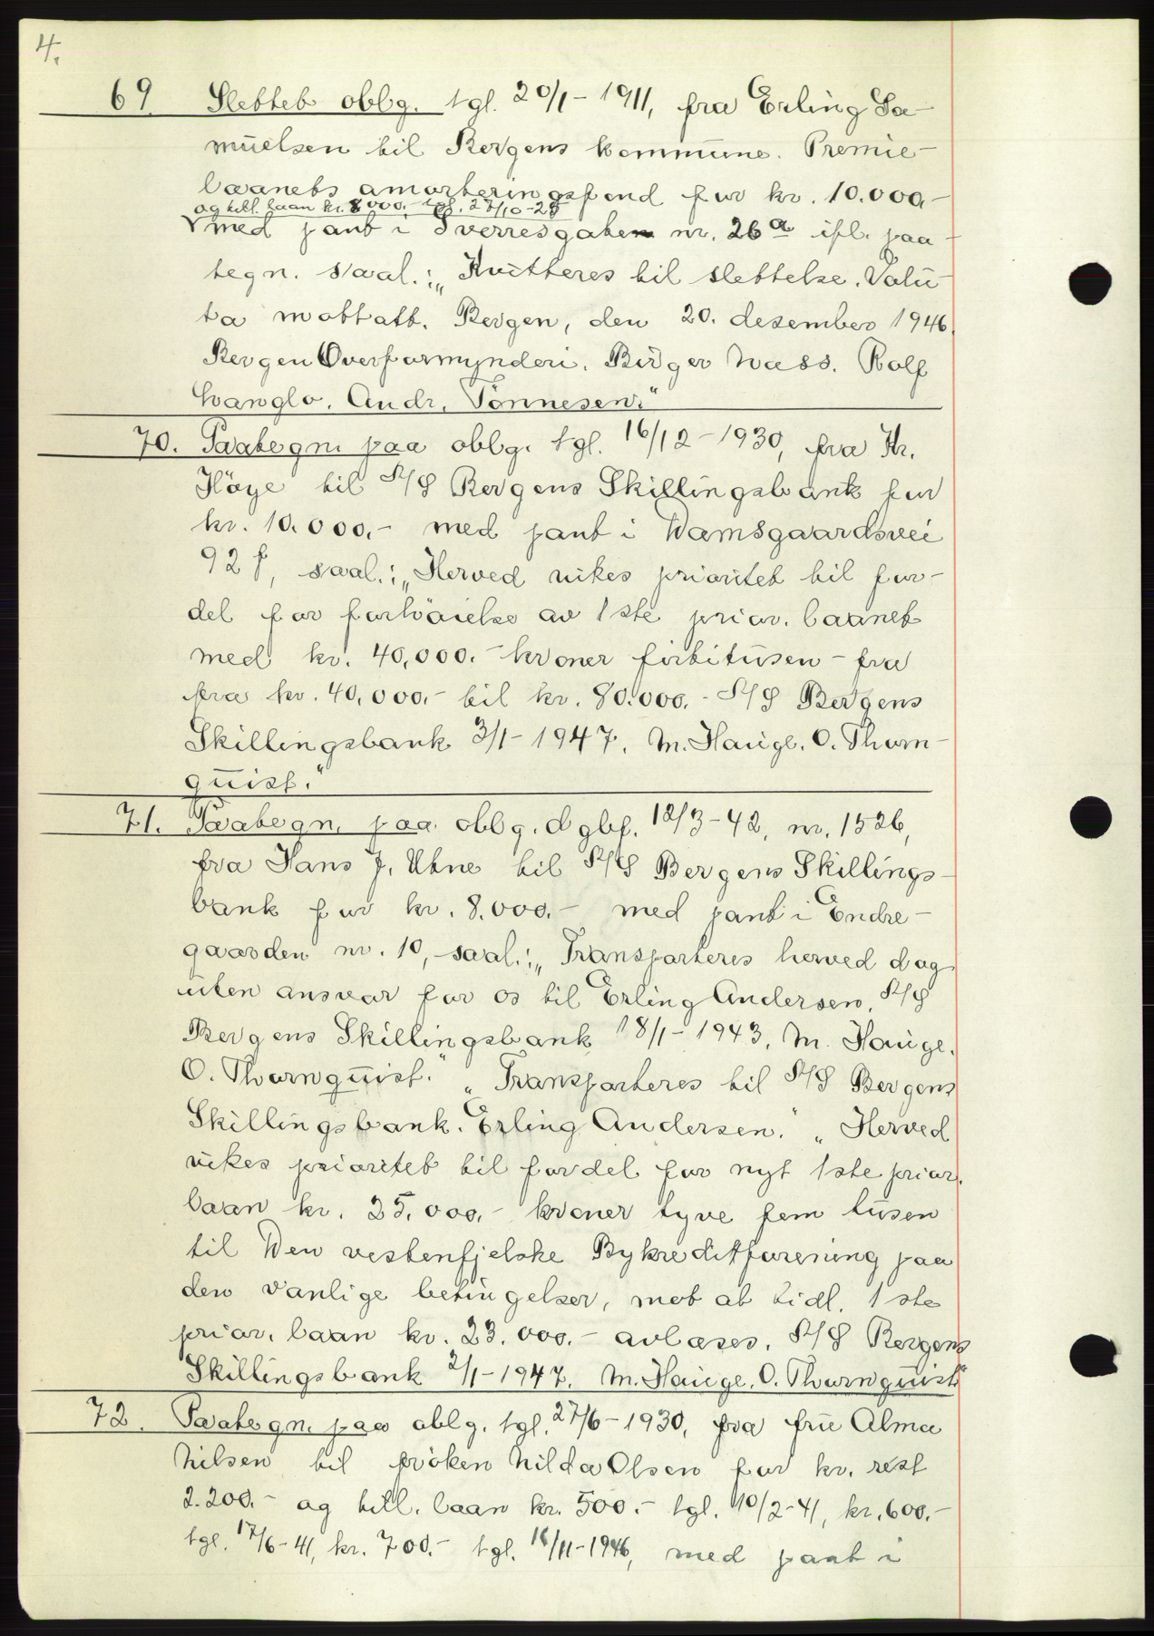 4.
69. Slettet oblg. tgl. 20/1-1911, fra Erling Sa-
muelsen til Bergens kommune. Premie-
laanets amorteringsfond for kr. 10.000,-
og till. laan kr. 8000.- tgl. 27/10-25
V med pant i Sverresgaten nr. 26a ifl. paa-
tegn. saal.: „Kvitteres til slettelse. Valu-
ta mottatt. Bergen, den 20. desember 1946.
Bergen Overformynderi. Birger Wass. Rolf
Wanglo. Andr. Tönnesen."
70. Paategn. paa oblg. tgl. 16/12-1930, fra Kr.
Höye til A/S Bergens Skillingsbank for
kr. 10.000.- med pant i Damsgaardsvei
92 f, saal.: „Herved vikes prioritet til for-
del for forhöielse av 1ste prior. laanet
med kr. 40,000.- kroner förtitusen - fra
fra kr. 40,000.- til kr. 80.000.- A/S Bergens
Skillingsbank 3/1-1947. M. Hauge. O. Thorn-
quist."
71. Paategn. paa oblg. dgbf. 12/3-42, nr. 1526,
fra Hans J. Utne til A/S Bergens Skillings-
bank for kr. 8.000.- med pant i Endre-
gaarden nr. 10, saal.: „Transporteres herved dog
uten ansvar for os til Erling Andersen. A/S
Bergens Skillingsbank 18/1-1943. M. Hauge.
O. Thornquist." „Transporteres til A/S Bergens
Skillingsbank. Erling Andersen." „Herved
vikes prioritet til fordel for nyt 1ste prior.
laan kr. 25.000.- kroner tyve fem tusen
til Den vestenfjelske Bykreditforening paa
den vanlige betingelser, mot at tidl. 1ste
prior. laan kr. 23.000.- avlöses. A/S Bergens
Skillingsbank 2/1-1947. M. Hauge. O. Thornquist"
72. Paategn. paa oblg. tgl. 27/6-1930, fra fru Alma
Nilsen til fröken Nilda Olsen for kr. rest
2.200.- og till. laan kr. 500.- tgl. 10/2-41, kr. 600.-
tgl. 17/6-41, kr. 700.- tgl. 16/11-1946, med pant i